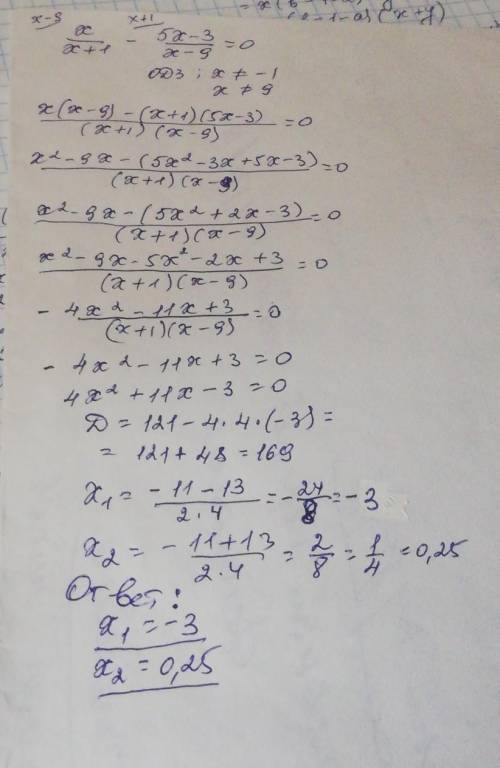 x-9 x+1
x/(x+1) - (5x-3)/(x-9) = 0
ОДЗ: x ≠ -1
x ≠ 9
(x(x-9) - (x+1)(5x-3))/((x+1)(x-9)) = 0
(x² - 9x - (5x² - 3x + 5x - 3))/((x+1)(x-9)) = 0
(x² - 9x - (5x² + 2x - 3))/((x+1)(x-9)) = 0
(x² - 9x - 5x² - 2x + 3)/((x+1)(x-9)) = 0
- (4x² - 11x + 3)/((x+1)(x-9)) = 0
- 4x² - 11x + 3 = 0
4x² + 11x - 3 = 0
D = 121 - 4·4·(-3) =
= 121 + 48 = 169
x₁ = (-11-13)/(2·4) = -24/8 = -3
x₂ = (-11+13)/(2·4) = 2/8 = 1/4 = 0,25
Ответ:
x₁ = -3
x₂ = 0,25